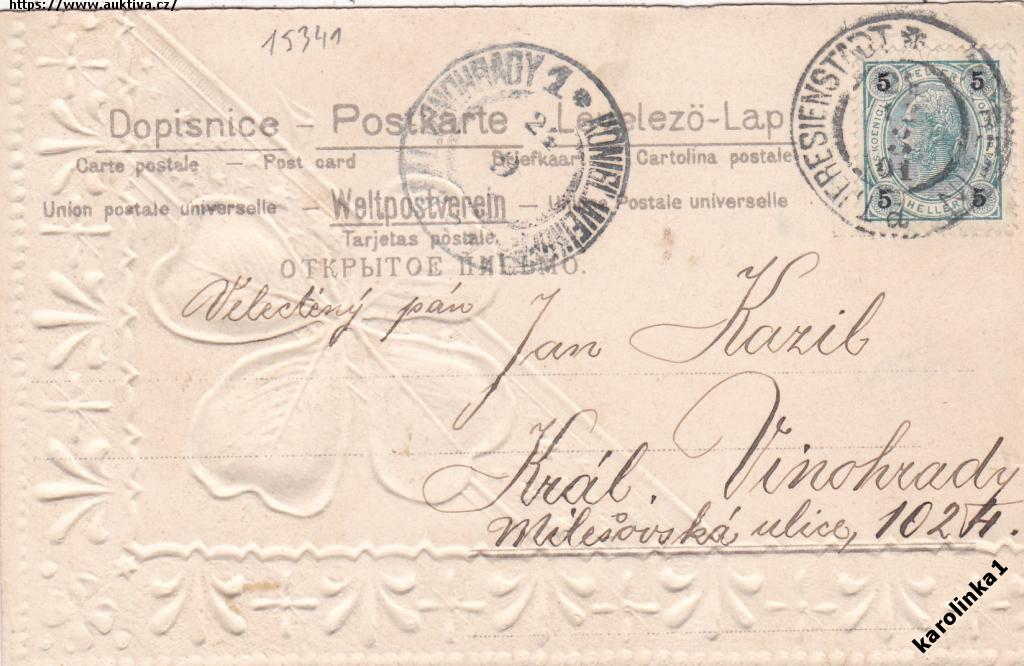 https://www.auktiva.cz/
15341
Dopisnice – Postkarte – Levelezö-Lap
Carte postale – Post card Briefkaart Cartolina postale
Union postale universelle – Weltpostverein – Postale universale
Tarjetas postale.
ОТКРЫТОЕ ПИСЬМО.
THERESIENSTADT
5 HELLER 5
5 HELLER 5
VINOHRADY 1 * KÖNIGL. WEINBERGE
Velectěný pán
Jan Kazil
Král. Vinohrady
Milešovská ulice, 1024.
karolinka1